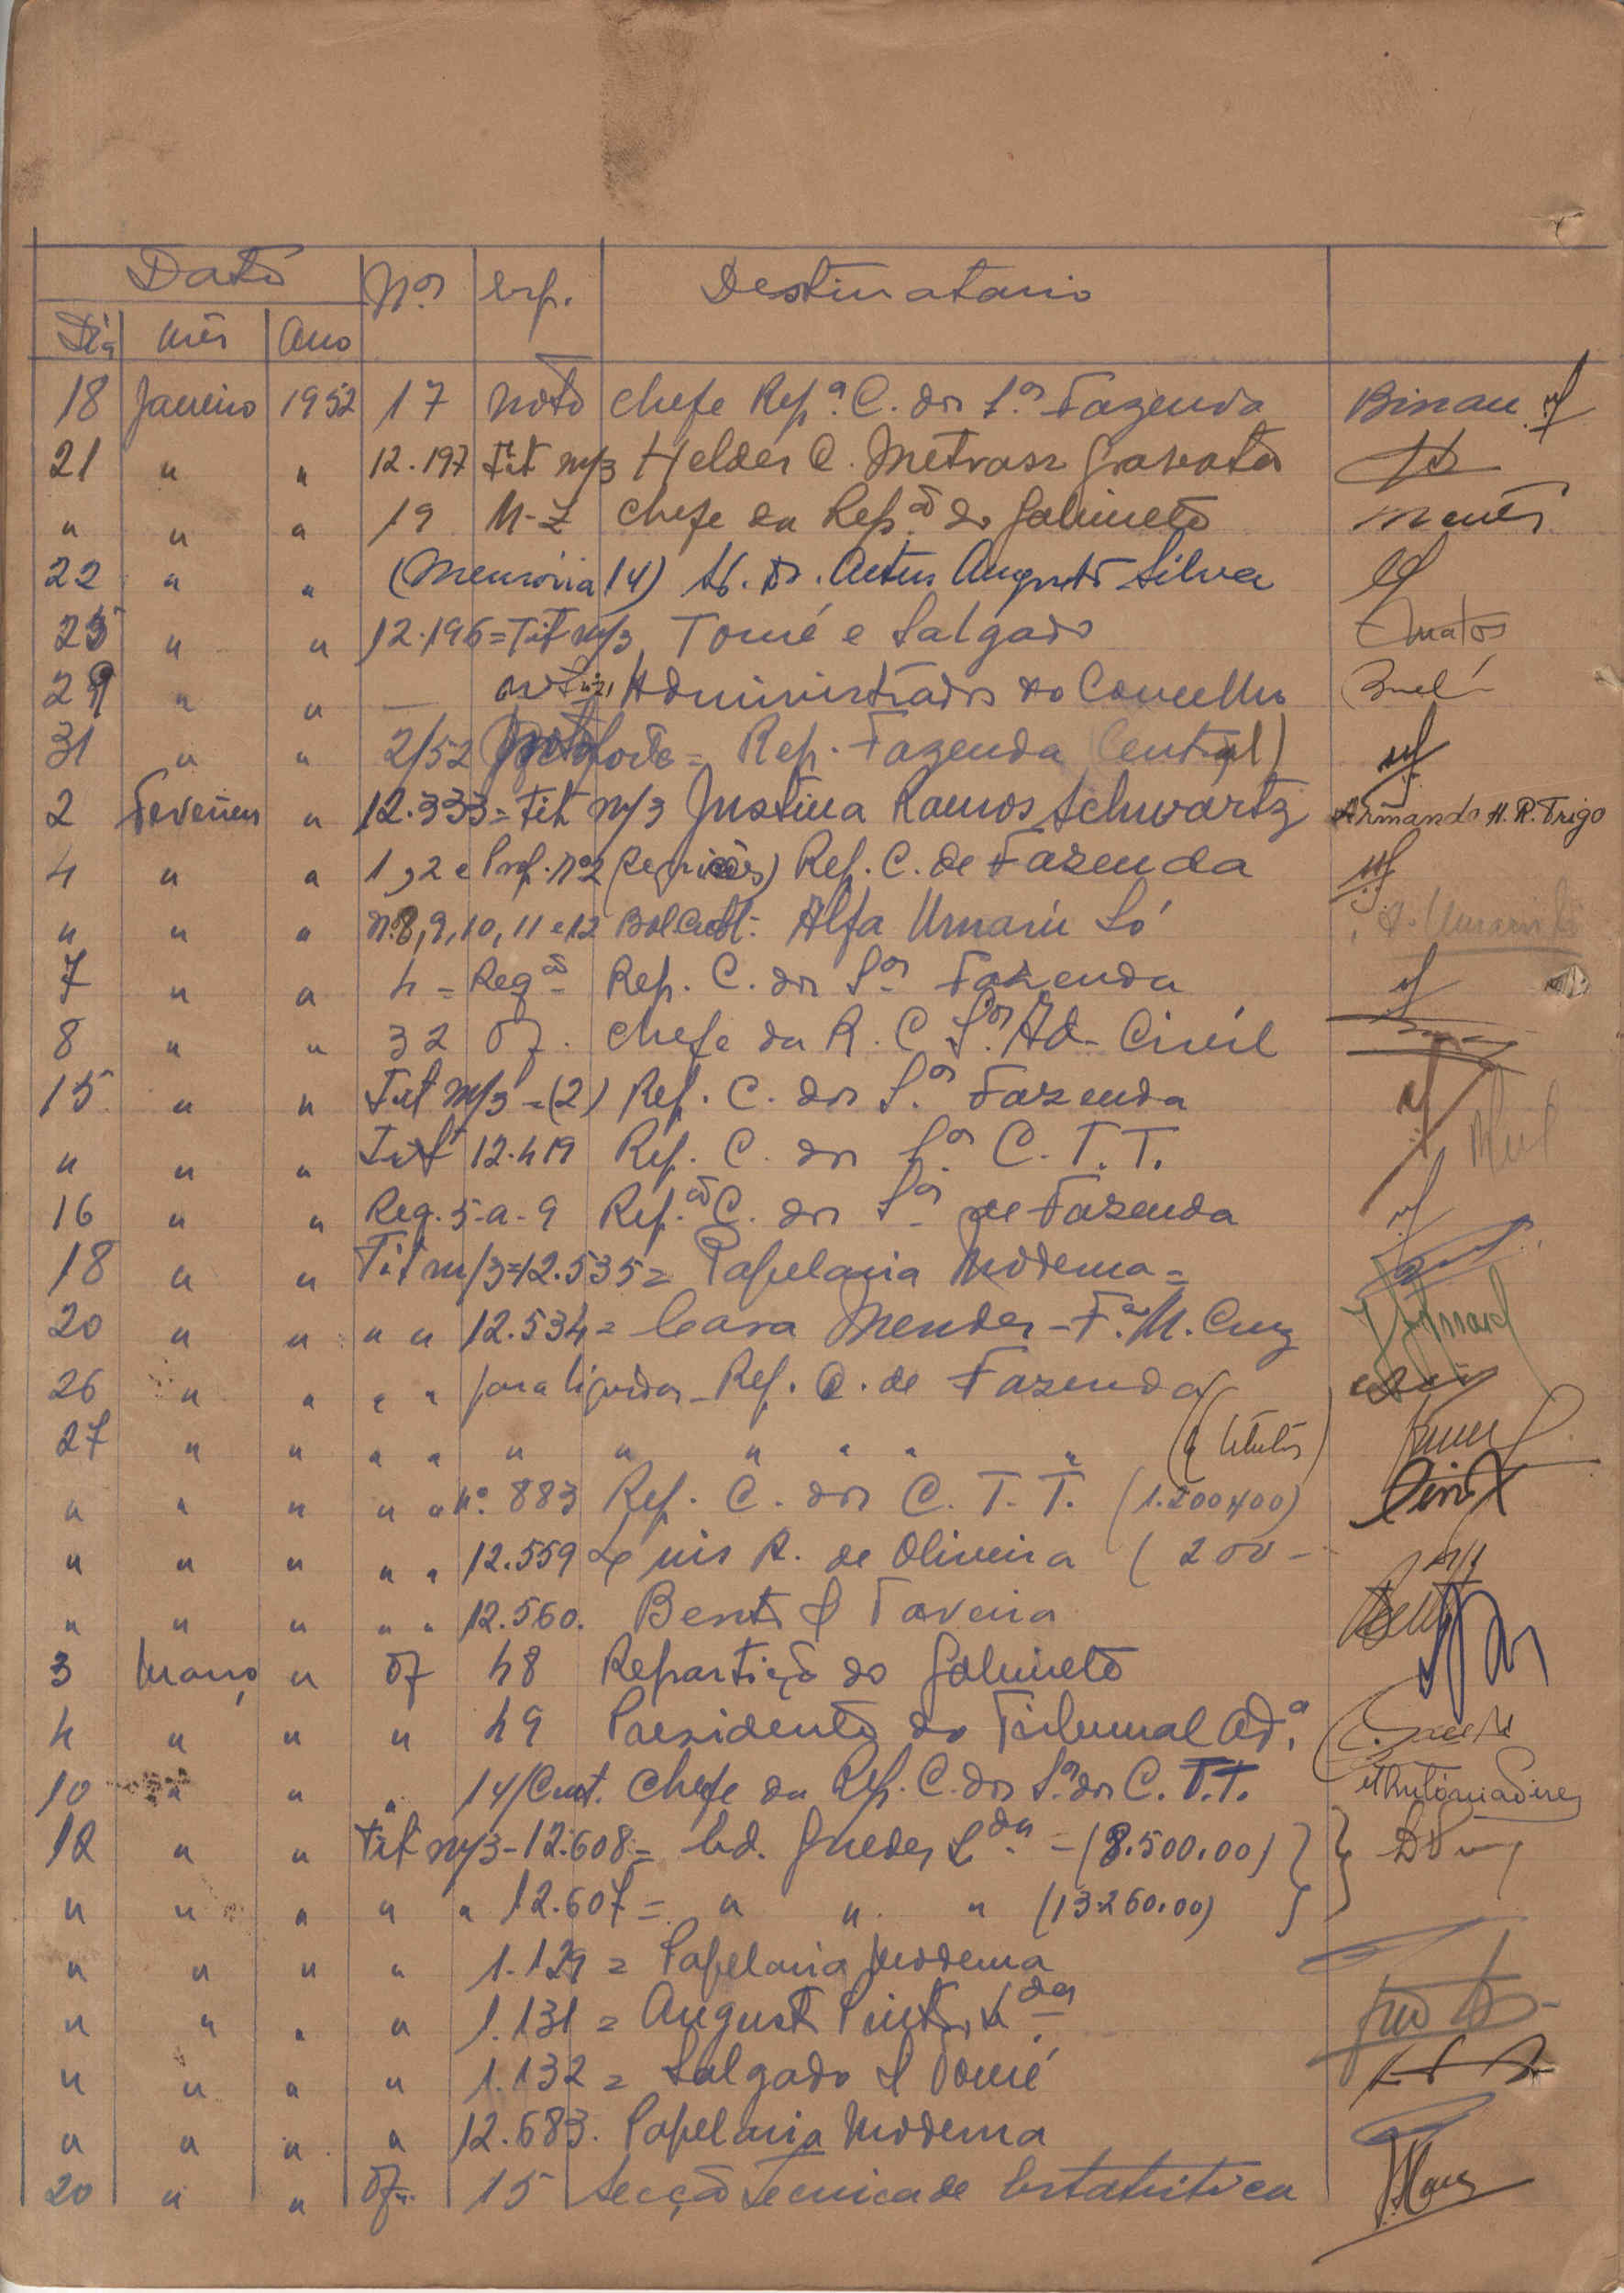 Data Nº Esp. Destinatario
Dia Mês Ano
18 Janeiro 1952 17 Nota Chefe Repª. C. dos S.os Fazenda
21 " " 12.197 Tit m/3 Helder C. Metrass Gravato
" " " 19 N-Z Chefe da Rep.ão do Gabinete
22 " " (Memória 14) Augusto Silva
25 " " 12.196 = Tit m/3 Tomé e Salgado
29 " " — Administrador do Concelho
31 " " 2/52 = Rep. Fazenda (Central)
2 Fevereiro " 12.333 = Tit m/3 Justina Ramos Schwartz Armando H. R. Trigo
4 " " 1, 2 e nº2 Rep. C. de Fazenda
" " " Nº 8, 9, 10, 11 e 12 Alfa Umaru Só
7 " " 4 = Reqão Rep. C. dos S.os Fazenda
8 " " 32 Of. Chefe da R. C. S.os Ad. Civil
15 " " Tit m/3 = (2) Rep. C. dos S.os Fazenda
" " " Tit 12.419 Rep. C. dos S.os C. T. T.
16 " " Req. 5-a-9 Rep.ão C. dos S.os de Fazenda
18 " " Tit m/3 = 12.535 = Papelaria Moderna =
20 " " " " 12.534 = Casa Mendes - Fª. M. Cruz
26 " " " " para liquidar - Rep. C. de Fazenda
27 " " " " " " " " " " ( títulos)
" " " " " nº 883 Rep. C. dos C. T. T. (1.200$00)
" " " " " 12.559 Luis R. de Oliveira (200-
" " " " " 12.560. Bento & Taveira
3 Março " Of 48 Repartição do Gabinete
4 " " " 49 Presidente do Tribunal Ad.º
10 " " " 14/Cont. Chefe da Rep. C. dos S.os dos C. T. T.
12 " " Tit m/3 - 12.608 = Ed. Guedes L.da - (8.500.00)
" " " " " 12.607 = " " " (13.260.00)
" " " " 1.129 = Papelaria Moderna
" " " " 1.131 = Augusto Pinto, L.da
" " " " 1.132 = Salgado & Tomé
" " " " 12.683. Papelaria Moderna
20 " " Of. 15 Secção Tecnica de Estatistica